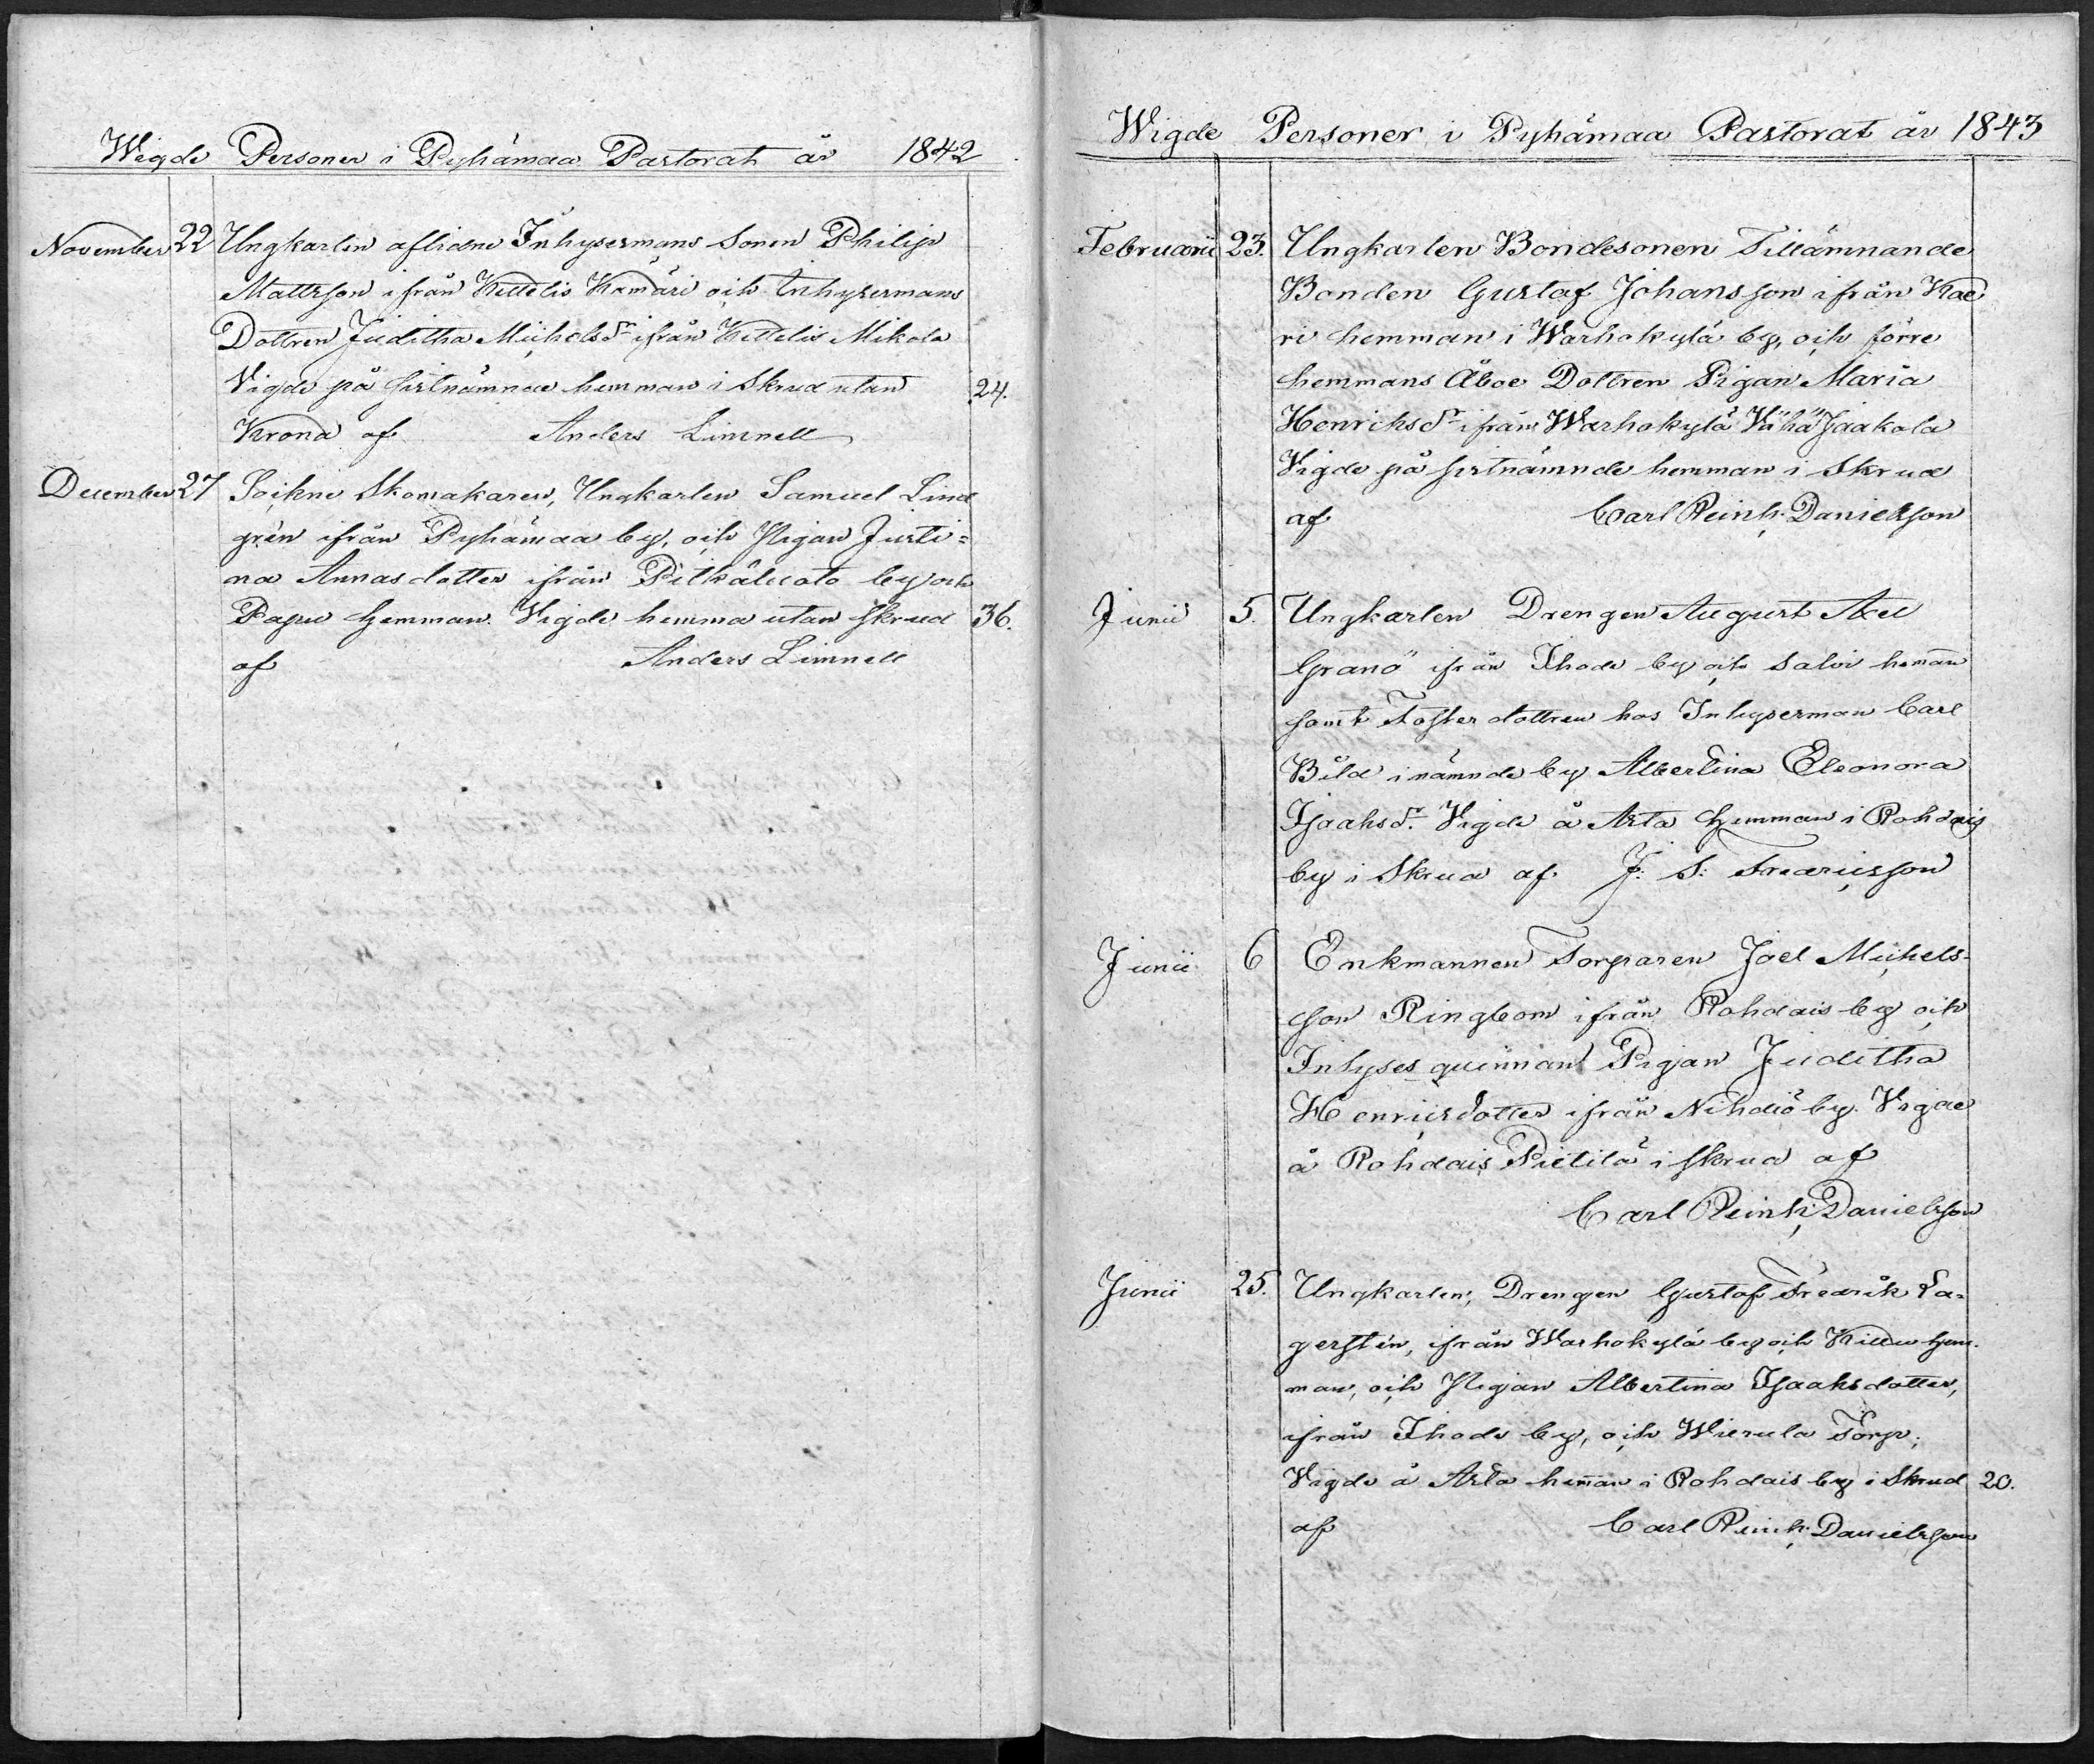 Wigde Personer i Pyhämaa Pastorat år 1842
November 22 Ungkarlen aflidne Inhysermans Sonen Philip
Mattsson ifrån Kettelis Kamäri och Inhysermans
Dottren Juditha Michelsdr ifrån Kettelis Mikola
Vigde på sistnämnde hemman i Skrud utan 24.
Krona af Anders Limnell
December 27 Sockne Skomakaren, Ungkarlen Samuel Lind
gren ifrån Pyhämaa by, och Pigan Justi=
na Annasdotter ifrån Pitkäluoto by och
Papu hemman. Vigde hemma utan skrud 36.
af Anders Limnell
Wigde Personer i Pyhämaa Pastorat år 1843
Februarii 23. Ungkarlen Bondesonen Tillämnande
Bonden Gustaf Johansson ifrån Kae
ri hemman i Warhokylä by, och förre
hemmans Åboe Dottren Pigan Maria
Henrichsdr ifrån Warhokylä Vähä Jaakola
Vigde på sistnämnde hemman i Skrud
af Carl Reinh. Danielsson
Junii 5. Ungkarlen Drengen August Axel
Granö ifrån Ihode by och Salvi hemman
samt Fosterdottren hos Inhyserman Carl
Bild i nämnde by Albertina Eleonora
Isaksdr. Vigde å Arta hemman i Rohdais
by i Skrud af J: S: Fredricsson
Junii 6 Enkmannen Torparen Joel Michels-
son Ringbom ifrån Rohdais by och
Inhyses quinnan Pigan Juditha
Henricsdotter ifrån Nihdiö by. Vigde
å Rohdais Pietilä i skrud af
Carl Reinh. Danielsson
Junii 25. Ungkarlen, Drengen Gustaf Fredrik La=
gerstén, ifrån Warhokylä by och Killu hem-
man, och Pigan Albertina Isaaksdotter,
ifrån Ihode by, och Wierula Torp;
Vigde å Arta heman i Rohdais by i Skrud 20.
af Carl Reinh. Danielsson